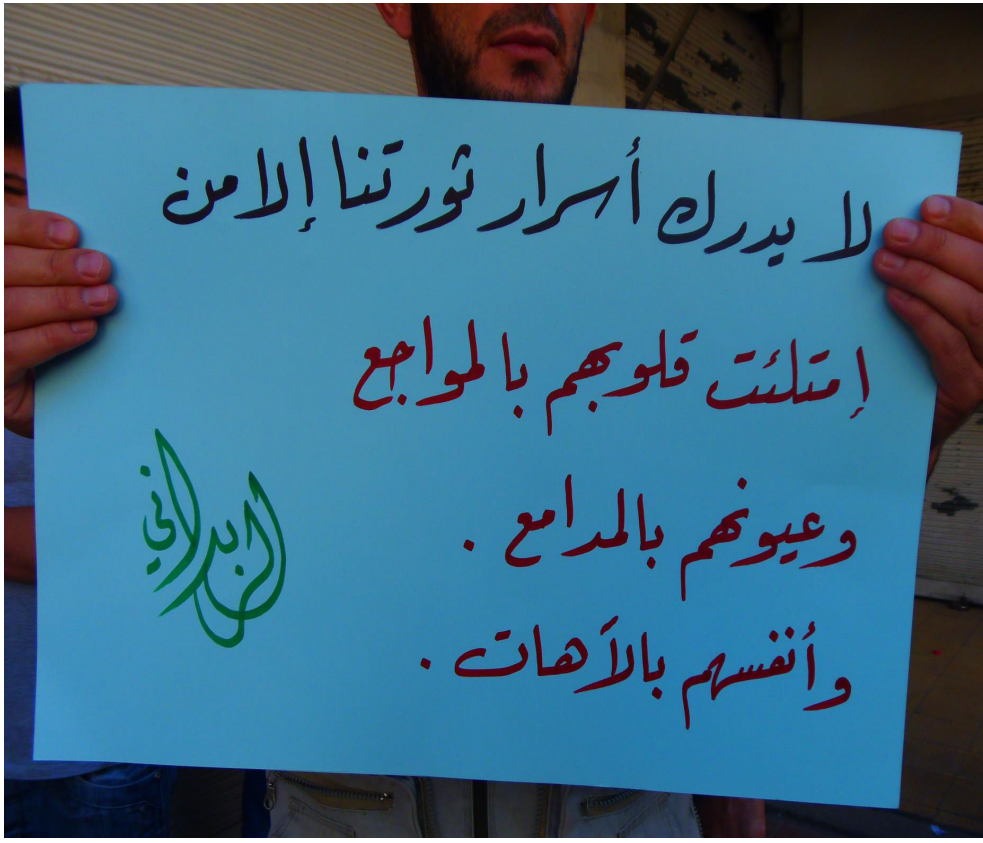 لا يدرك أسرار ثورتنا إلا من
إمتلئت قلوبهم بالمواجع
وعيونهم بالمدامع .
وأنفسهم بالآهات .
الزبداني